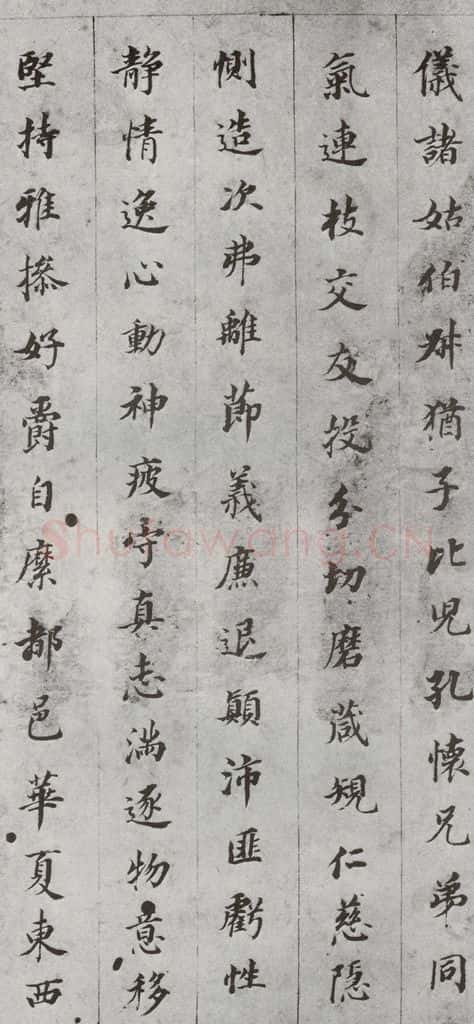 儀諸姑伯叔猶子比兒孔懷兄弟同
氣連枝交友投分切磨箴規仁慈隱
惻造次弗離節義廉退顛沛匪虧性
静情逸心動神疲守真志滿逐物意移
堅持雅操好爵自縻都邑華夏東西
Shufawang.CN